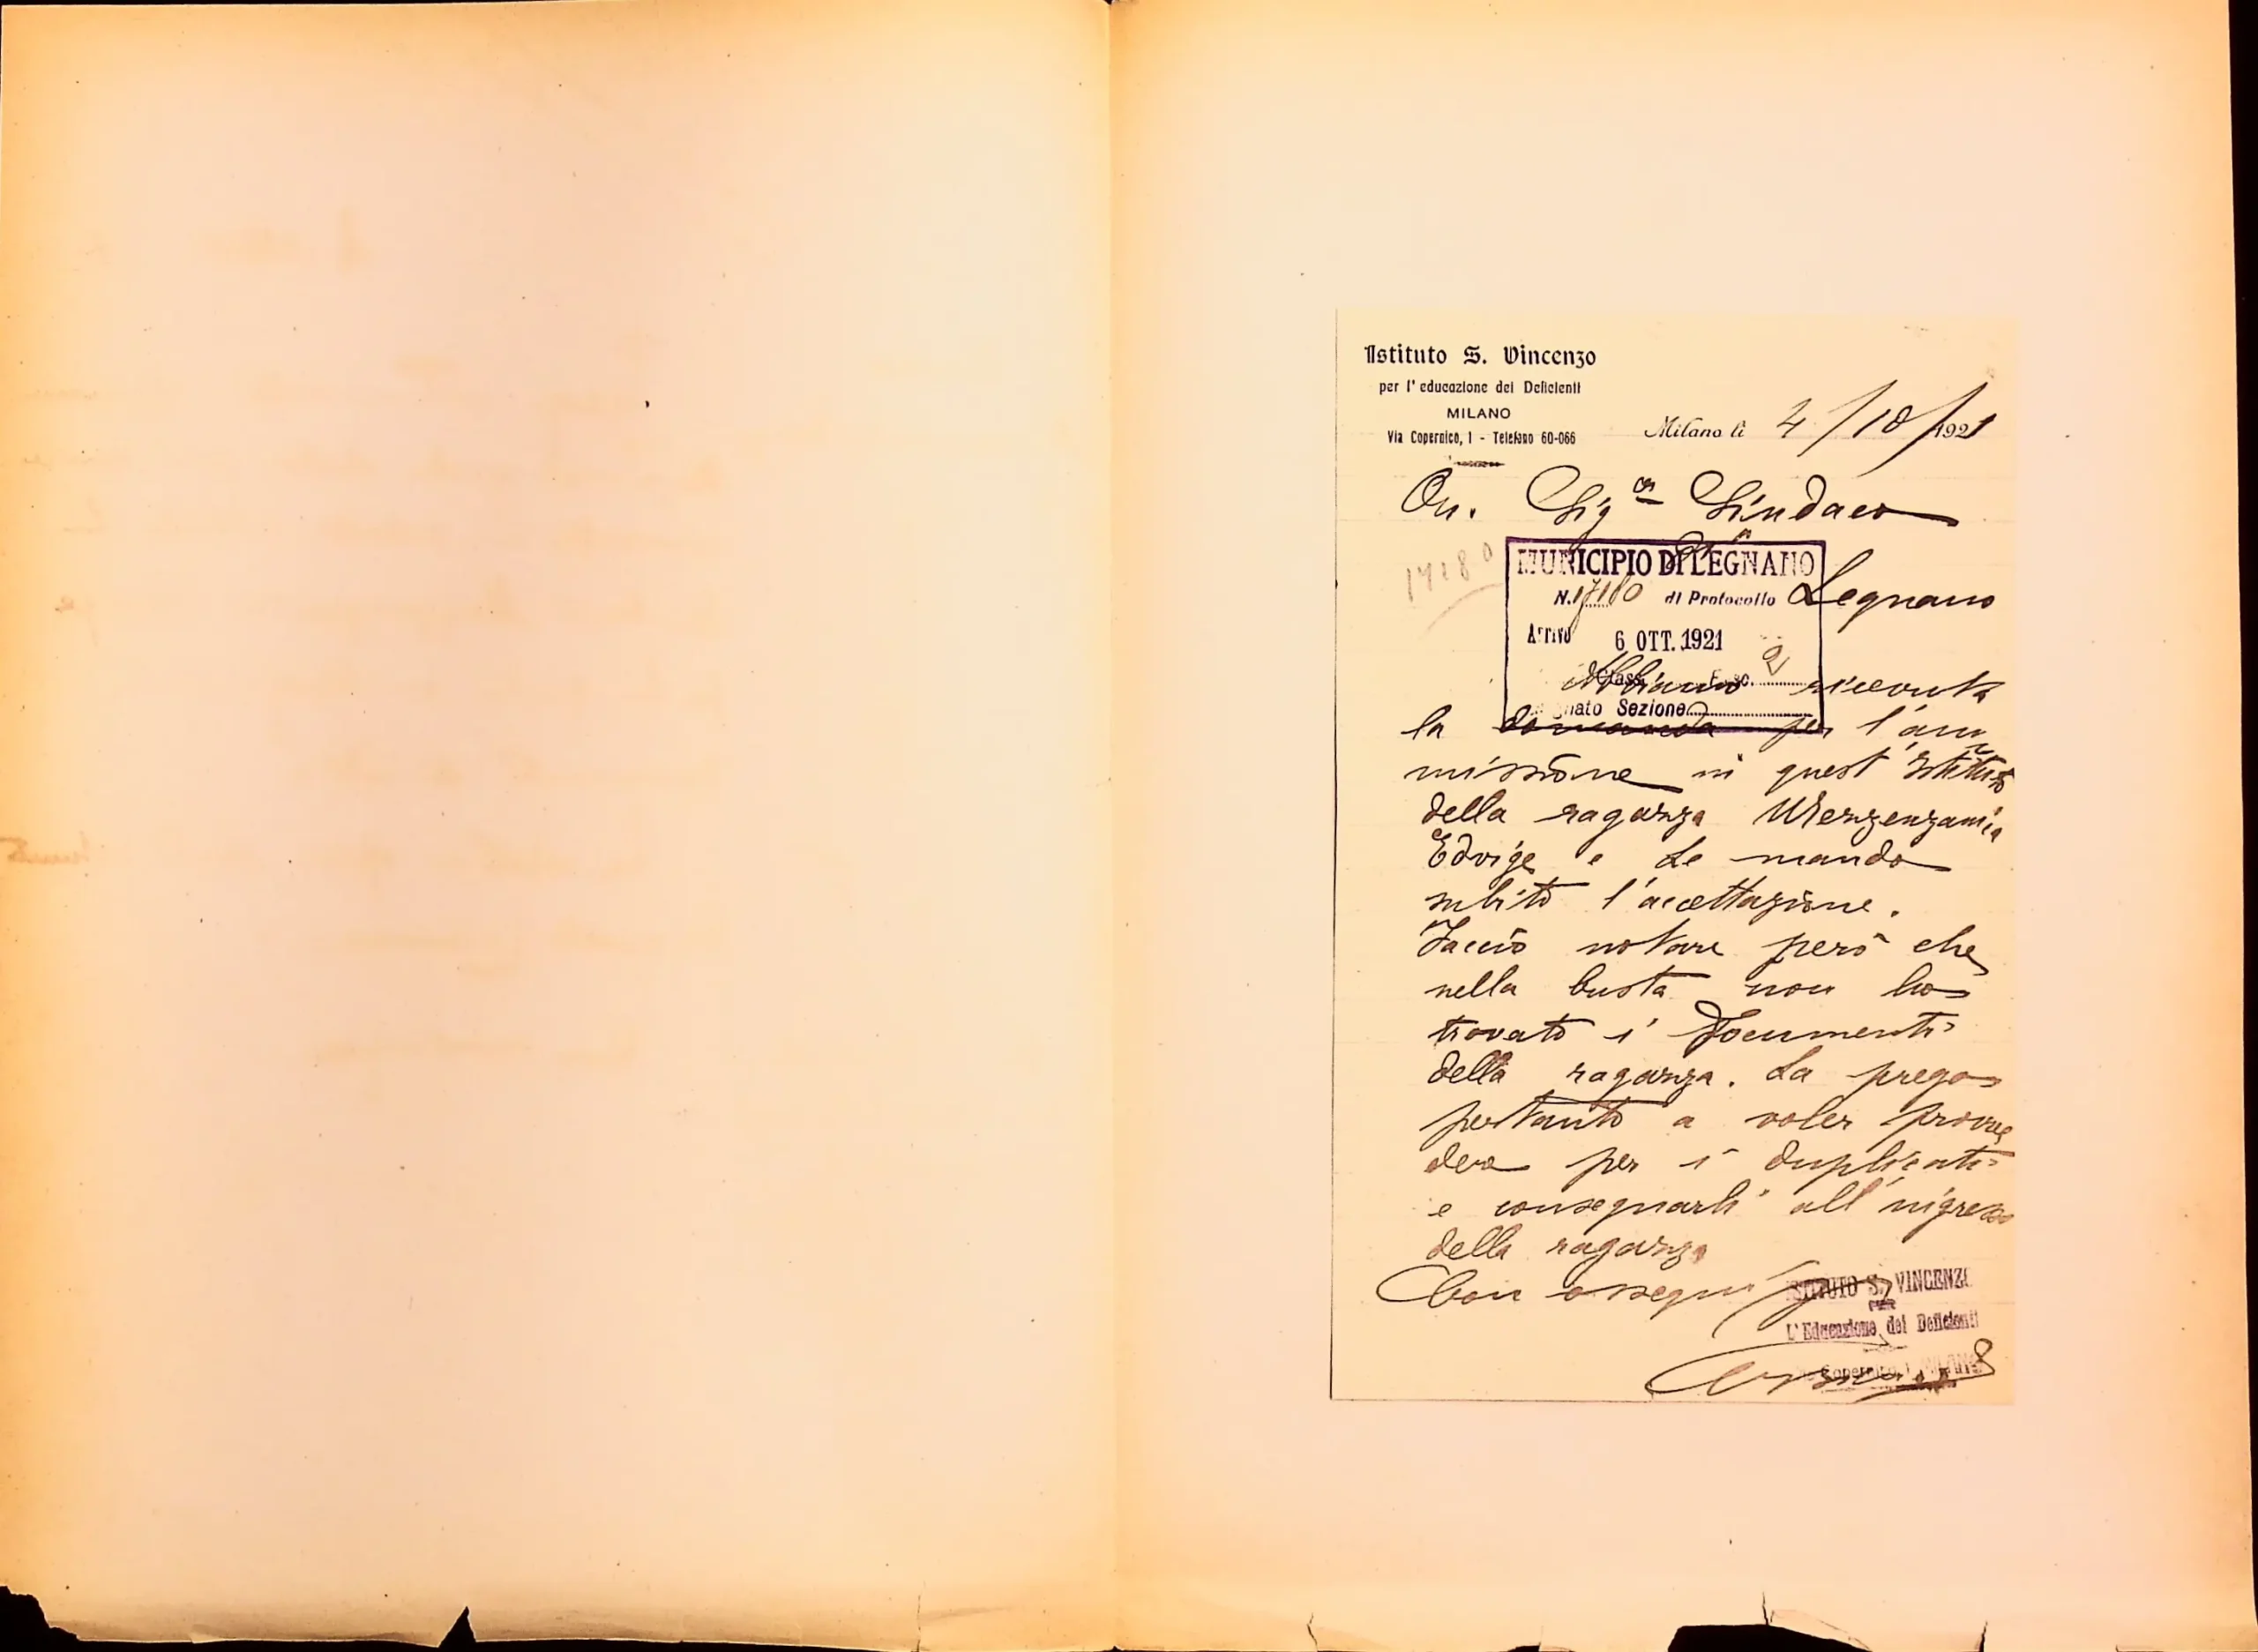 Istituto S. Vincenzo
per l'educazione dei Deficienti
MILANO
Via Copernico, 1 - Telefono 60-066
Milano li 4/10/1921
On. Sig.or Sindaco
di
Legnano
17180
MUNICIPIO DI LEGNANO
N. 17180 di Protocollo
Arrivo 6 OTT. 1921
Class. Fasc. 2
Sezione
Abbiamo ricevuta
la domanda per l'am
missione in quest'Istituto
della ragazza
Edvige e Le mando
subito l'accettazione.
Faccio notare però che
nella busta non ho
trovato i documenti
della ragazza. La prego
pertanto a voler provve
dere per i duplicati
e consegnarli all'ingresso
della ragazza
Con ossequi
ISTITUTO S. VINCENZO
PER
L'Educazione dei Deficienti
Copernico, 1 MILANO